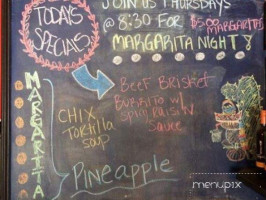 TODAYS
SPECIALS
JOIN US THURSDAYS
@ 8:30 FOR $5.00 MARGARITAS
MARGARITA NIGHT
MARGARITA
BEEF BRISKET
BURRITO W/
SPICY RAISIN
SAUCE
CHIX
TORTILLA
SOUP
PINEAPPLE
menupix